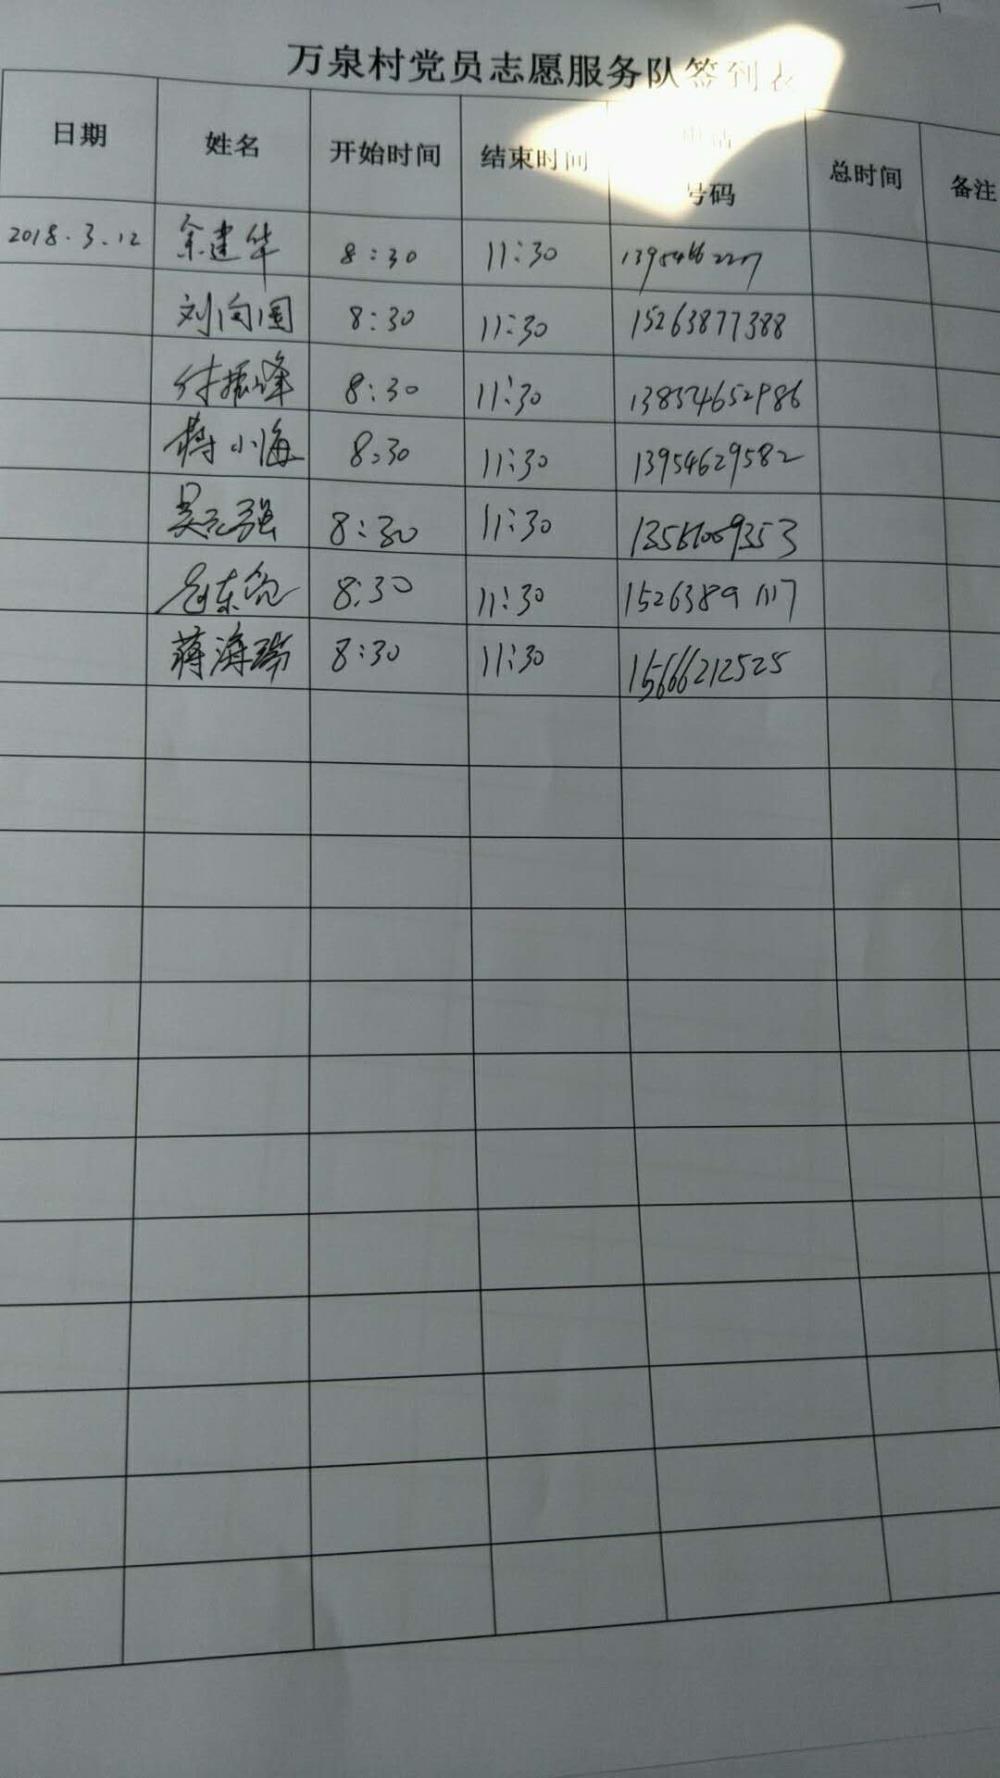 万泉村党员志愿服务队签到表
日期 姓名 开始时间 结束时间 电话号码 总时间 备注
2018.3.12 余建华 8:30 11:30
刘向国 8:30 11:30 15263877388
付振峰 8:30 11:30 13854652986
蒋小海 8:30 11:30 13954629582
吴元强 8:30 11:30
8:30 11:30 15263891117
蒋海瑞 8:30 11:30 15666212525